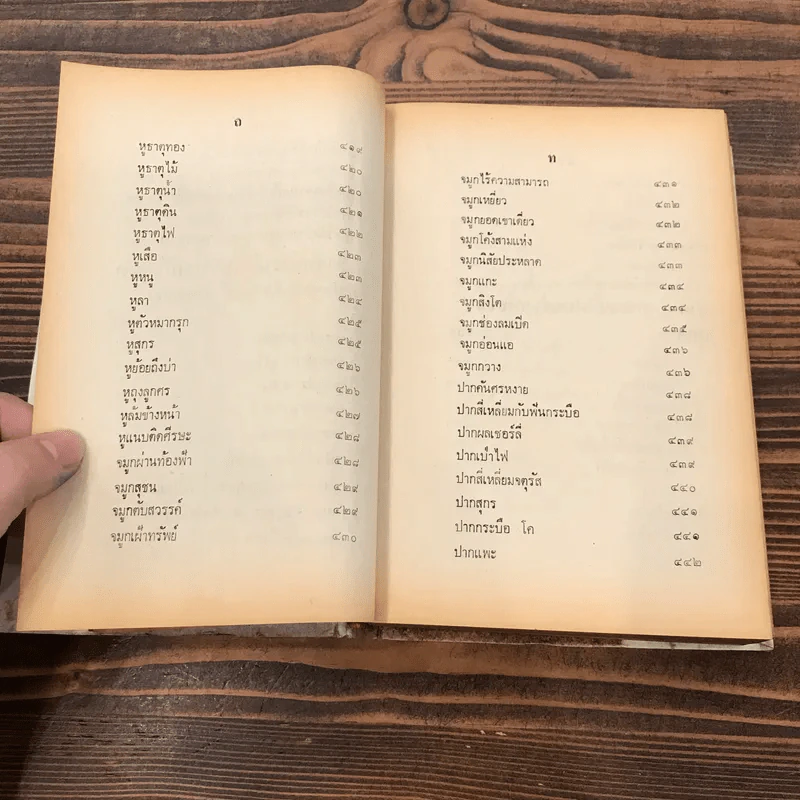 ถ
หูธาตุทอง ๔๑๙
หูธาตุไม้ ๔๒๐
หูธาตุน้ำ ๔๒๐
หูธาตุดิน ๔๒๑
หูธาตุไฟ ๔๒๒
หูเสือ ๔๒๓
หูหนู ๔๒๓
หูลา ๔๒๔
หูตัวหมากรุก ๔๒๕
หูสุกร ๔๒๕
หูย้อยถึงบ่า ๔๒๖
หูถุงลูกศร ๔๒๖
หูล้มข้างหน้า ๔๒๗
หูแนบติดศีรษะ ๔๒๘
จมูกผ่านท้องฟ้า ๔๒๘
จมูกสุชน ๔๒๙
จมูกตับสวรรค์ ๔๒๙
จมูกเฝ้าทรัพย์ ๔๓๐
ท
จมูกไร้ความสามารถ ๔๓๑
จมูกเหยี่ยว ๔๓๒
จมูกยอดเขาเดี่ยว ๔๓๒
จมูกโค้งสามแห่ง ๔๓๓
จมูกนิสัยประหลาด ๔๓๓
จมูกแกะ ๔๓๔
จมูกสิงโต ๔๓๔
จมูกช่องลมเปิด ๔๓๕
จมูกอ่อนแอ ๔๓๖
จมูกกวาง ๔๓๖
ปากคันศรหงาย ๔๓๘
ปากสี่เหลี่ยมกับฟันกระบือ ๔๓๘
ปากผลเชอร์ลี่ ๔๓๙
ปากเป่าไฟ ๔๓๙
ปากสี่เหลี่ยมจตุรัส ๔๔๐
ปากสุกร ๔๔๑
ปากกระบือ โค ๔๔๑
ปากแพะ ๔๔๒